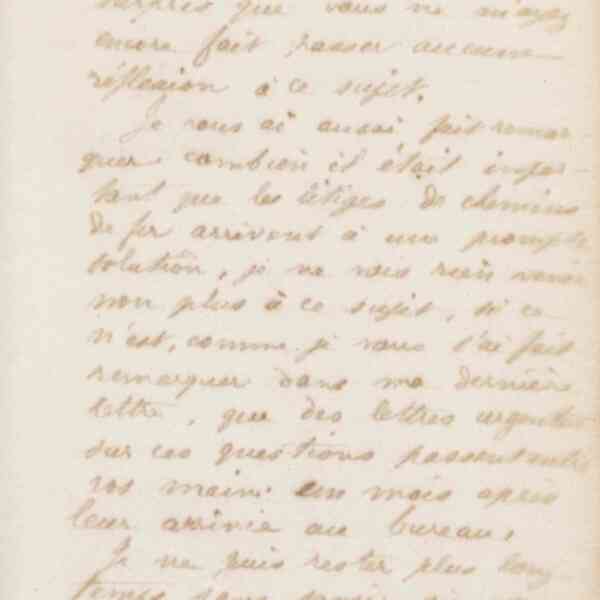 surpris que vous ne m'ayez
encore fait passer aucune
réflexion à ce sujet.
Je vous ai aussi fait remar-
quer combien il était impor-
tant que les litiges de chemins
de fer arrivent à une prompte
solution, je ne vois rien venir
non plus à ce sujet, si ce
n'est, comme je vous l'ai fait
remarquer dans ma dernière
lettre, que des lettres urgentes
sur ces questions passent entre
vos mains un mois après
leur arrivée au bureau.
Je ne puis rester plus long-
temps sans